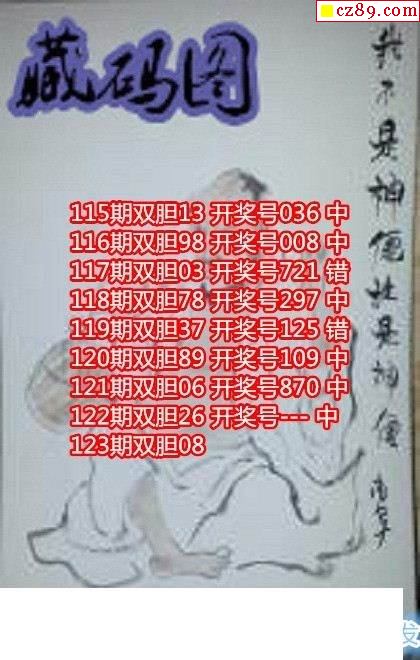 cz89.com
藏码图
115期双胆13 开奖号036 中
116期双胆98 开奖号008 中
117期双胆03 开奖号721 错
118期双胆78 开奖号297 中
119期双胆37 开奖号125 错
120期双胆89 开奖号109 中
121期双胆06 开奖号870 中
122期双胆26 开奖号--- 中
123期双胆08
我不是神但也是神僊